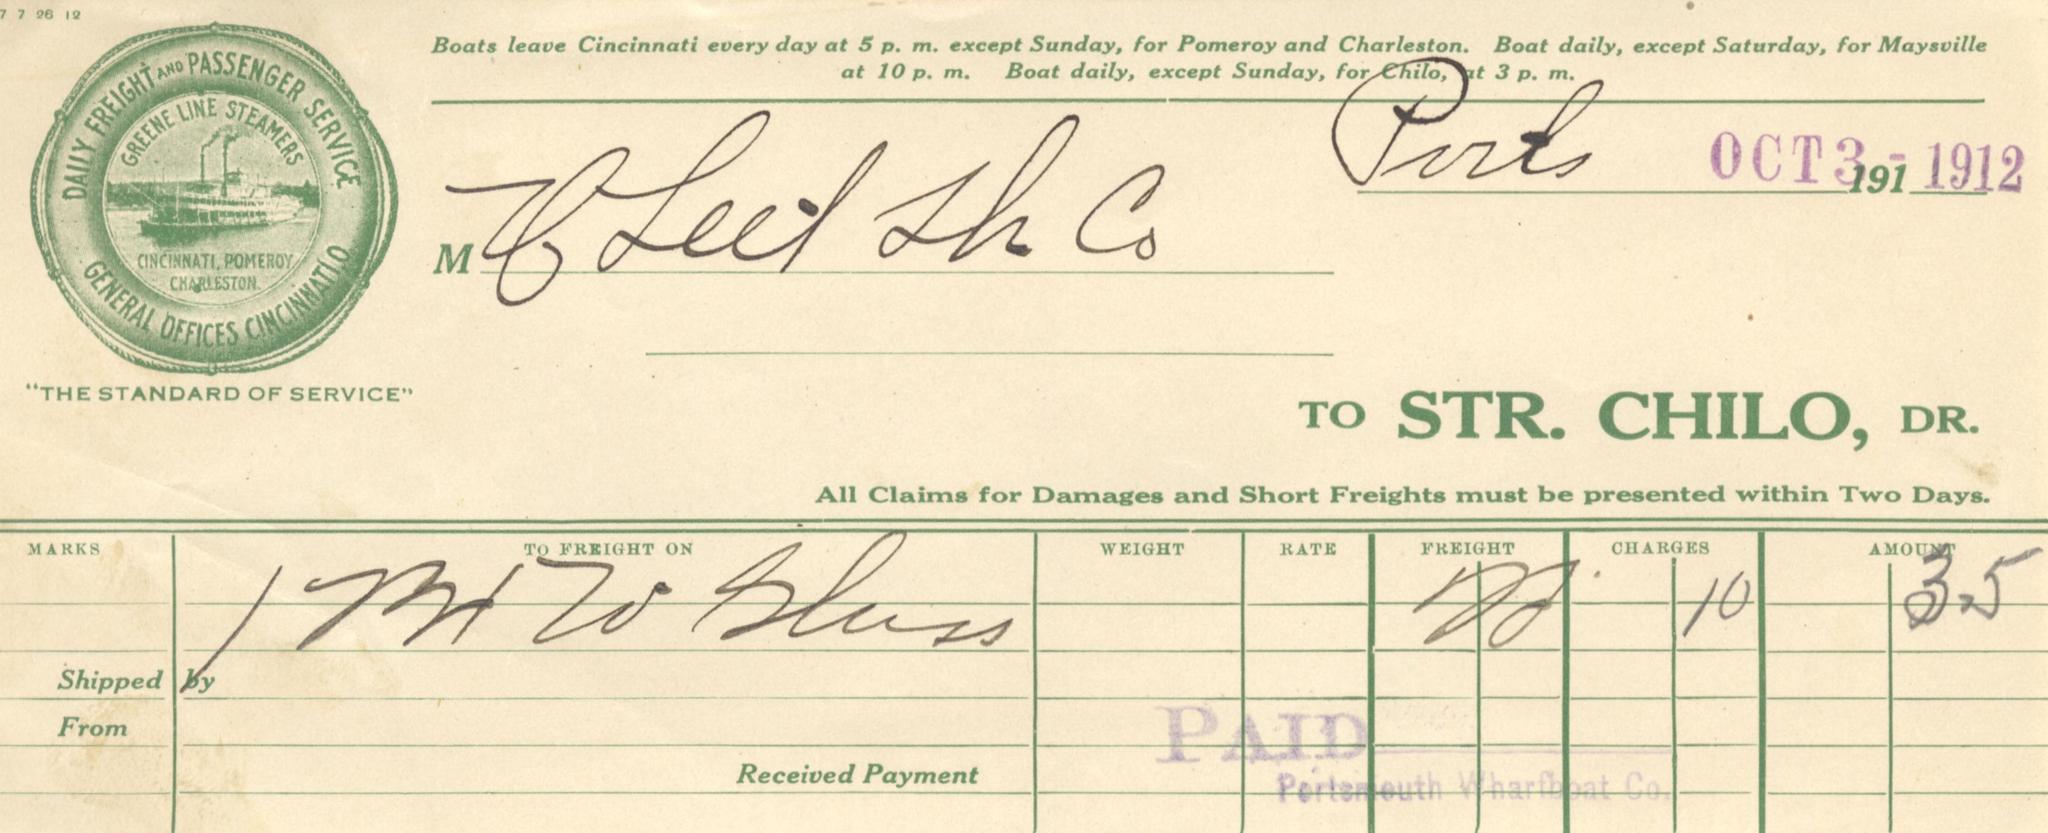 7 7 26 12
Boats leave Cincinnati every day at 5 p. m. except Sunday, for Pomeroy and Charleston. Boat daily, except Saturday, for Maysville
at 10 p. m. Boat daily, except Sunday, for Chilo, at 3 p. m.
DAILY FREIGHT AND PASSENGER SERVICE
GREENE LINE STEAMERS
CINCINNATI, POMEROY
CHARLESTON.
GENERAL OFFICES CINCINNATI, O
"THE STANDARD OF SERVICE"
Ports OCT 3 - 1912
191
M Sh Co
TO STR. CHILO, DR.
All Claims for Damages and Short Freights must be presented within Two Days.
MARKS TO FREIGHT ON WEIGHT RATE FREIGHT CHARGES AMOUNT
1 W Glass 25 10 35
Shipped by
From
PAID
Received Payment
Portsmouth Wharfboat Co.